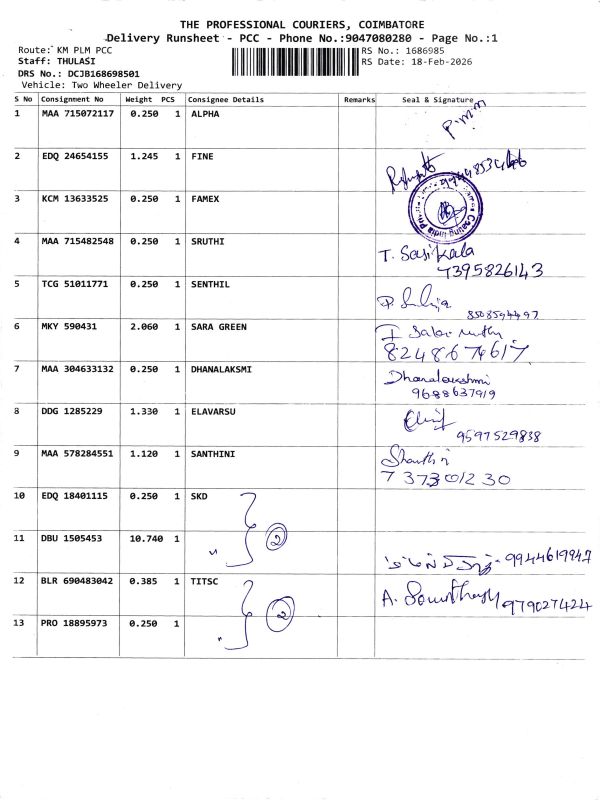 THE PROFESSIONAL COURIERS, COIMBATORE
Delivery Runsheet - PCC - Phone No.:9047080280 - Page No.:1
Route: KM PLM PCC RS No.: 1686985
Staff: THULASI RS Date: 18-Feb-2026
DRS No.: DCJB168698501
Vehicle: Two Wheeler Delivery
S No Consignment No Weight PCS Consignee Details Remarks Seal & Signature
1 MAA 715072117 0.250 1 ALPHA P.m.m
2 EDQ 24654155 1.245 1 FINE
3 KCM 13633525 0.250 1 FAMEX
4 MAA 715482548 0.250 1 SRUTHI T. Sasikala
7395826143
5 TCG 51011771 0.250 1 SENTHIL
8508594497
6 MKY 590431 2.060 1 SARA GREEN
8248674617
7 MAA 304633132 0.250 1 DHANALAKSMI Dhanalakshmi
9688637919
8 DDG 1285229 1.330 1 ELAVARSU
9597529838
9 MAA 578284551 1.120 1 SANTHINI Shanthi
7373001230
10 EDQ 18401115 0.250 1 SKD
11 DBU 1505453 10.740 1 " 2 9944619947
12 BLR 690483042 0.385 1 TITSC A. 979027424
13 PRO 18895973 0.250 1 " 2